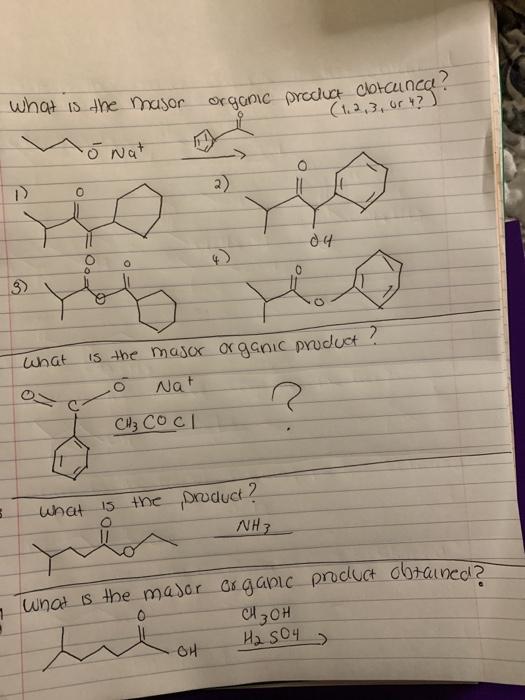 What is the major organic product obtained?
(1,2,3, or 4?)
O⁻ Na⁺
O
1)
O
O
2)
O
OH
3)
O
O
O
4)
O
O
What is the major organic product?
O
C
O⁻ Na⁺
CH3 CO Cl
?
What is the product?
O
O
NH3
What is the major organic product obtained?
O
OH
CH3OH
H2SO4